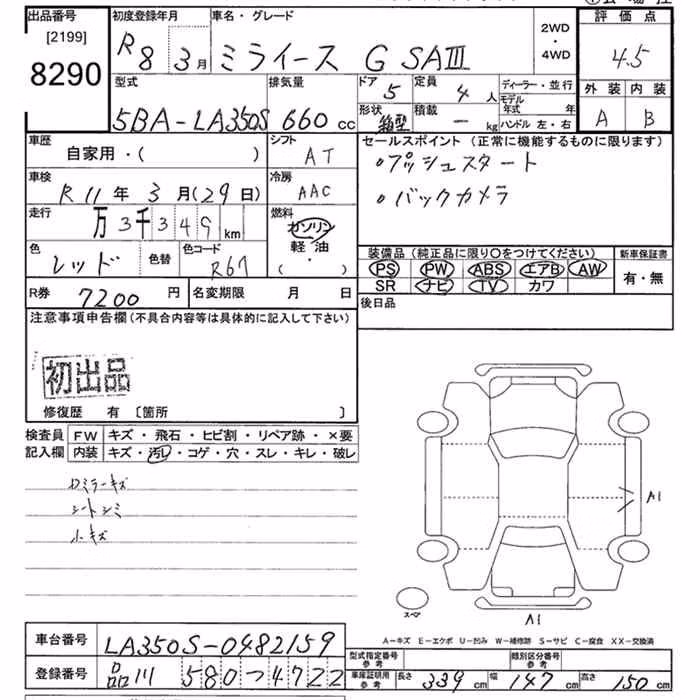 出品番号
[2199]
8290
初度登録年月
R8年3月
車名・グレード
ミライース G SAⅢ
2WD
・
4WD
評価点
4.5
外装 内装
A B
型式
5BA-LA350S
排気量
660 cc
ドア
5
定員
4 人
形状
箱型
積載
ー kg
ディーラー・並行
モデル年式 年
ハンドル 左・右
車歴
自家用・( )
シフト
AT
車検
R11年3月(29日)
冷房
AAC
走行
万3千349km
燃料
ガソリン
軽油
( )
色
レッド
色替
色コード
R67
セールスポイント(正常に機能するものに限ります)
。プッシュスタート
。バックカメラ
装備品(純正品に限り〇をつけてください)
PS PW ABS エアB AW
SR ナビ TV カワ
新車保証書
有・無
R券 7200 円
名変期限 月 日
後日品
注意事項申告欄(不具合内容等は具体的に記入して下さい)
初出品
修復歴 有 〔箇所 〕
検査員
記入欄
FW キズ・飛石・ヒビ割・リペア跡・×要
内装 キズ・汚レ・コゲ・穴・スレ・キレ・破レ
シートシミ
小キズ
A1
スペア
A1
A-キズ E-エクボ U-凹み W-補修跡 S-サビ C-腐食 XX-交換済
車台番号
LA350S-0482159
登録番号
品川 580 つ 4722
型式指定番号
参考
類別区分番号
参考
車庫証明用
参考
長さ 339 cm
幅 147 cm
高さ 150 cm